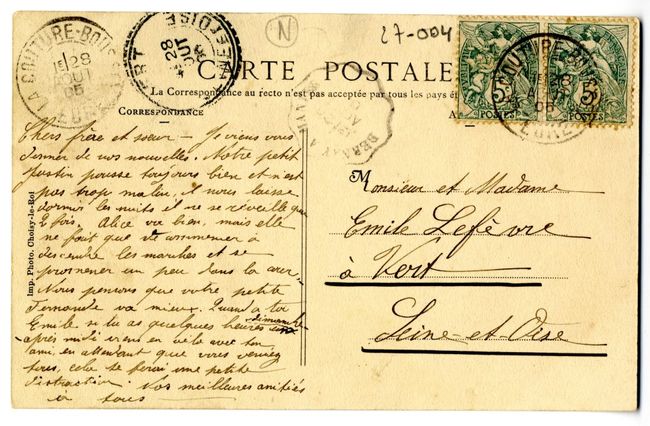 N
27-004
LA COUTURE-BOUSSEY
28
AOUT
05
EURE
28
AOUT
05
SEINE-ET-OISE
CARTE POSTALE
La Correspondance au recto n'est pas acceptée par tous les pays
CORRESPONDANCE
POSTES
POSTES
LA COUTURE-BOUSSEY
28
05
EURE
Imp. Photo. Choisy-le-Roi
Chers frère et sœur — Je viens vous
donner de nos nouvelles. Notre petit
Justin pousse toujours bien et n'est
pas trop malin, il nous laisse
dormir les nuits il ne se réveille que
2 fois. Alice va bien, mais elle
ne fait que commencer à
descendre les marches et se
promener un peu dans la cour.
Nous pensons que votre petite
Fernande va mieux. Quand à toi
Emile si tu as quelques heures dimanche
après midi viens en vélo avec ton
ami, en attendant que vous veniez
tous, cela te ferai une petite
distraction. Nos meilleures amitiés
à tous
Monsieur et Madame
Emile Lefèvre
à Vert
Seine-et-Oise